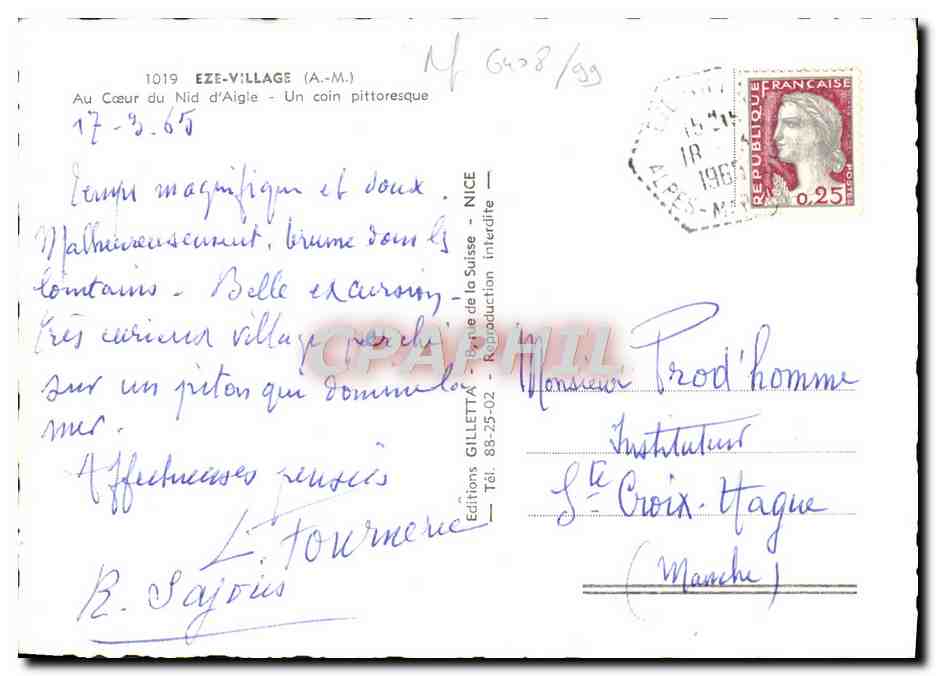 1019 EZE-VILLAGE (A.-M.)
Au Cœur du Nid d'Aigle - Un coin pittoresque
17-3.65
Temps magnifique et doux.
Malheureusement, brume dans les
lointains - Belle excursion -
Très curieux village perché
sur un piton qui domine la
mer.
Affectueuses pensées
L. Fournerie
R. Sajous
Editions GILLETTA - 8, rue de la Suisse - NICE
— Tél. 88-25-02 - Reproduction interdite —
6408/99
15 H 15
18
196
ALPES-M
REPUBLIQUE FRANÇAISE
POSTES
0,25
Monsieur Prod'homme
Instituteur
Ste Croix-Hague
(Manche)
CPAPHIL